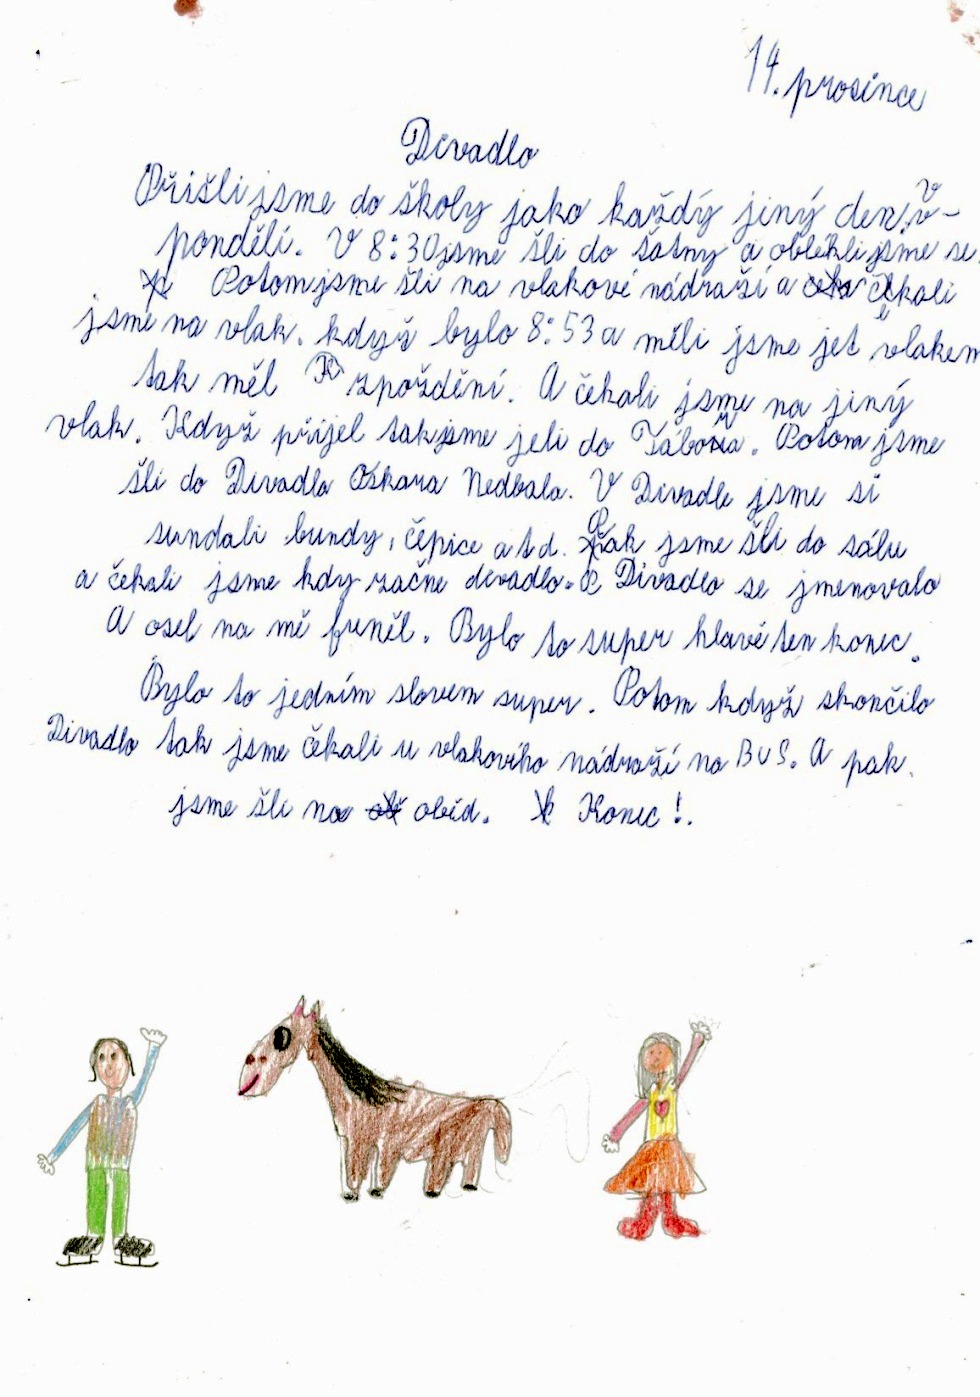 14. prosince
Divadlo
Přišli jsme do školy jako každý jiný den, v
pondělí. V 8:30 jsme šli do šatny a oblékli jsme se.
Potom jsme šli na vlakové nádraží a čekali
jsme na vlak. když bylo 8:53 a měli jsme jet vlakem
tak měl zpoždění. A čekali jsme na jiný
vlak. Když přijel tak jsme jeli do Tábora. Potom jsme
šli do Divadla Oskara Nedbala. V Divadle jsme si
sundali bundy, čepice a t d. Pak jsme šli do sálu
a čekali jsme kdy začne divadlo. Divadlo se jmenovalo
A osel na mě funěl. Bylo to super hlavě ten konec.
Bylo to jedním slovem super. Potom když skončilo
Divadlo tak jsme čekali u vlakovího nádraží na BUS. A pak
jsme šli na oběd. Konec!.